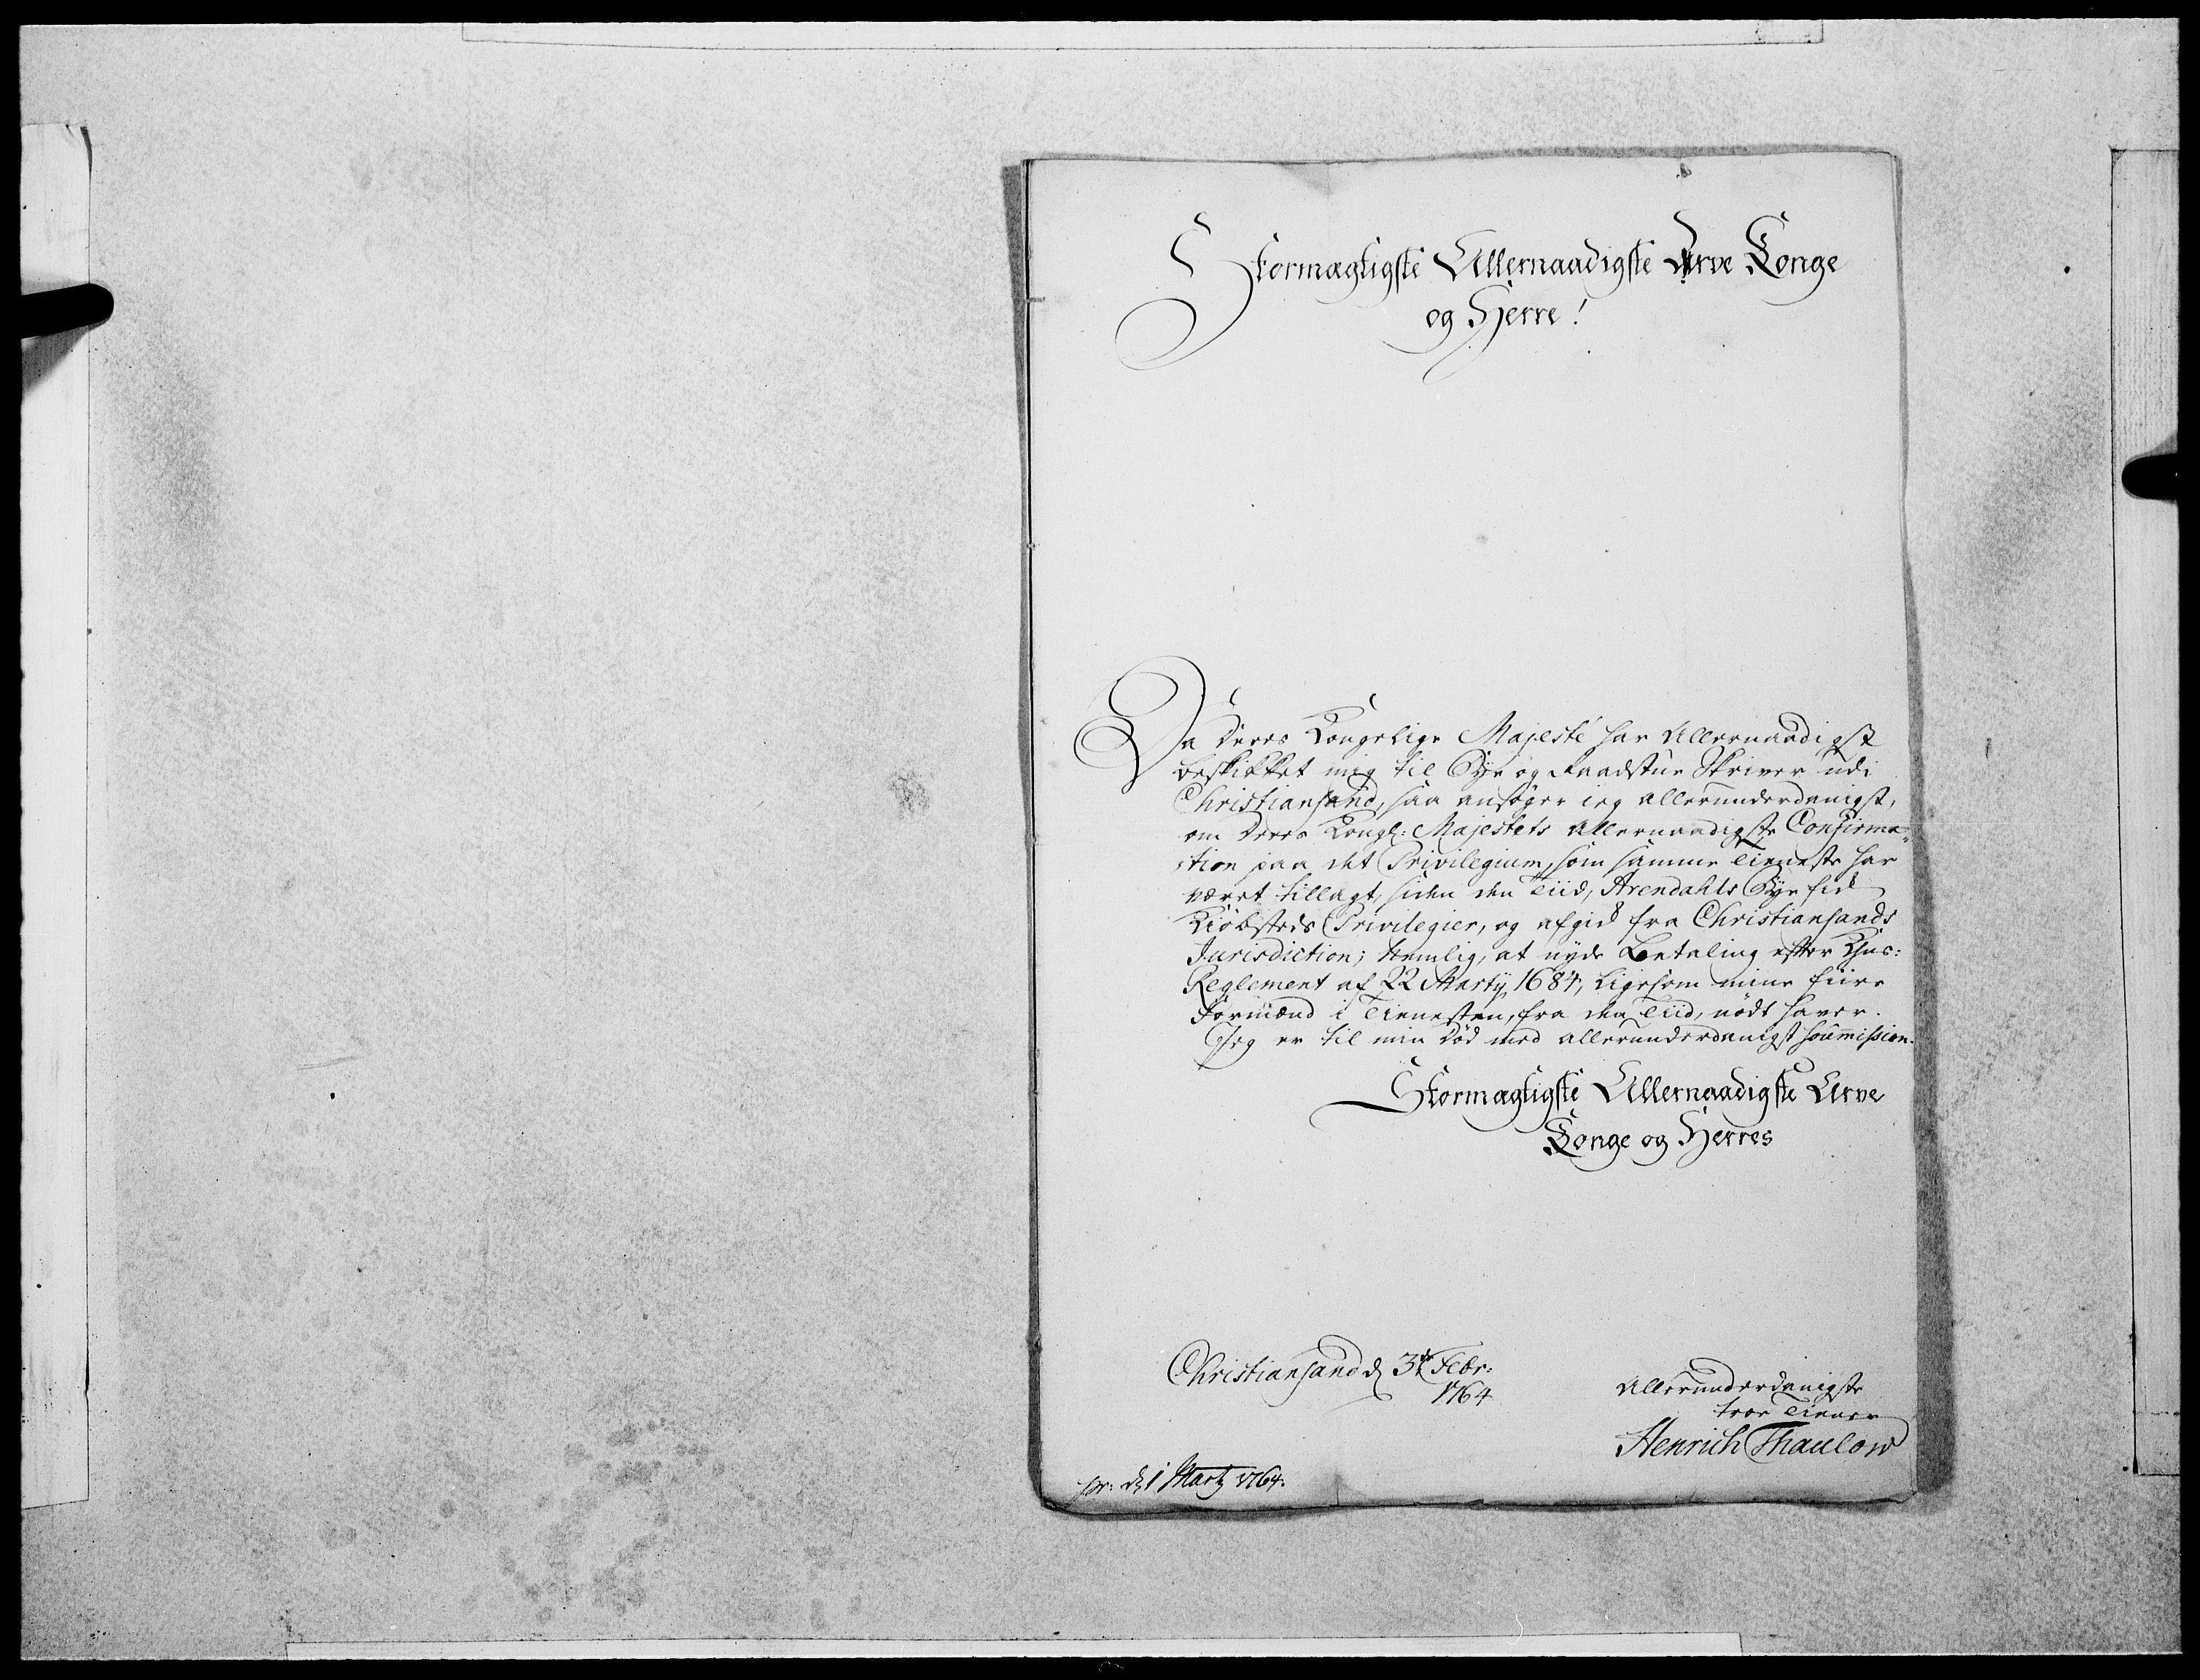 Stormægtigste Allernaadigste Arve Konge
og Herre!
Da Deres Kongelige Majesté har Allernaadigst
beskikket mig til Bye og Raadstue Skriver udi
Christiansand, saa ansøger ieg allerunderdanigst,
om Deres Kongl: Majestets Allernaadigste Confirma-
tion paa det Privilegium, som samme Tieneste har
været tillagt, siden den Tiid, Arendahls Bye fik
Kiøbsteds Privilegier, og afgik fra Christiansands
Jurisdiction; Nemlig, at nyde Betaling efter
Reglement af 22 Marty 1684, ligesom mine fiire
Formænd i Tienesten, fra den Tiid, nödt haver.
Jeg er til min Död med allerunderdanigst soumission.
Stormægtigste Allernaadigste Arve
Konge og Herres
Christiansand d 3de Febr:
1764
Allerunderdanigste
troe Tiener
Henrich Thaulow
pr: d 1 Marty 1764.